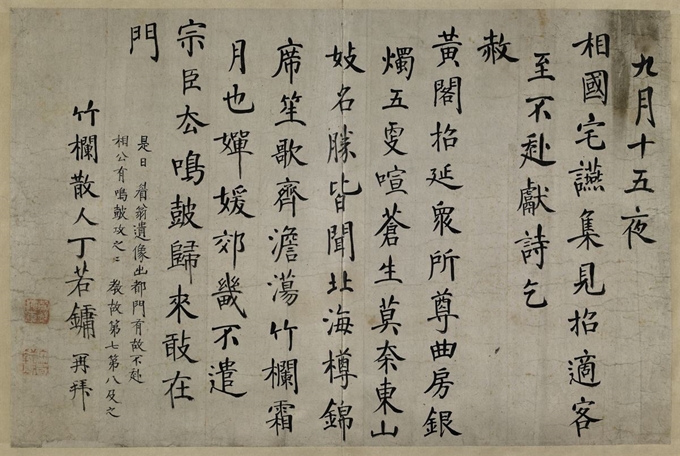 九月十五夜
相國宅讌集見招適客
至不赴獻詩乞
赦
黃閣招延衆所尊曲房銀
燭五更喧蒼生莫奈東山
妓名勝皆聞北海樽錦
席笙歌齊澹蕩竹欄霜
月也嬋媛郊畿不遣
宗臣厺鳴皷歸來敢在
門
是日睂翁遺像出都門有故不赴
相公有鳴皷攻之〻教故第七第八及之
竹欄散人丁若鏞再拜